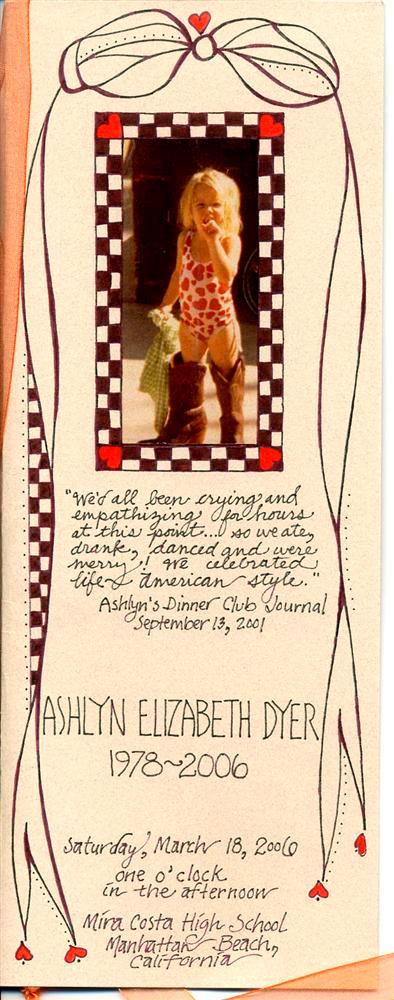 "We'd all been crying and
empathizing for hours
at this point... so we ate,
drank, danced and were
merry! We celebrated
life~ american style."
Ashlyn's Dinner Club Journal
September 13, 2001
ASHLYN ELIZABETH DYER
1978~2006
Saturday, March 18, 2006
one o'clock
in the afternoon
Mira Costa High School
Manhattan Beach,
California